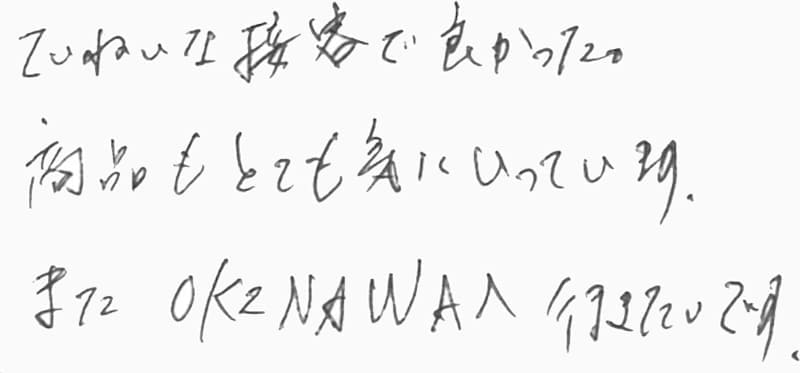 ていねいな接客で良かった。
商品もとても気にいっています.
また OKINAWAへ 行きたいです.